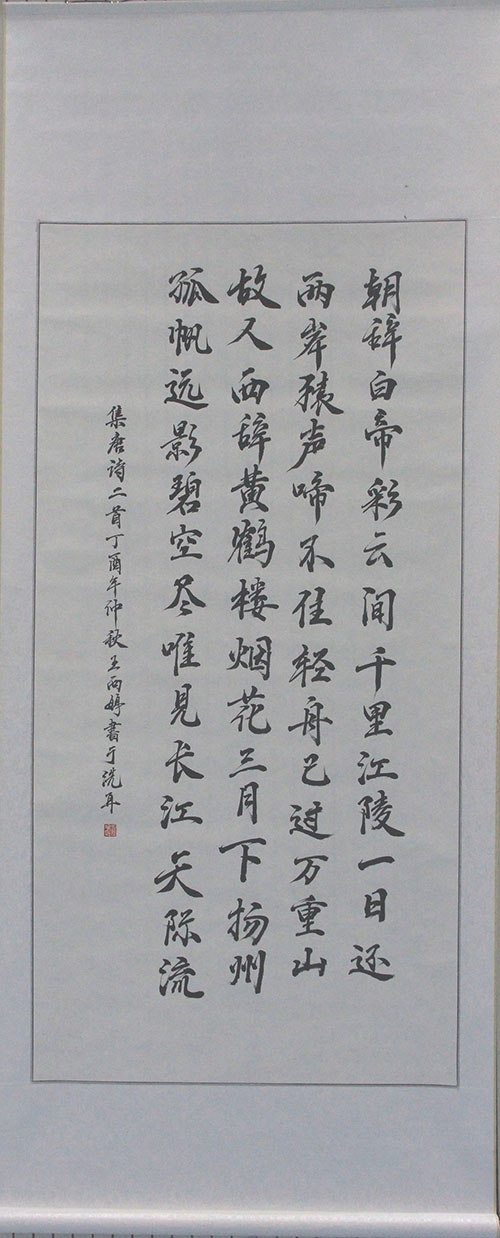 朝辞白帝彩云间千里江陵一日还
两岸猿声啼不住轻舟已过万重山
故人西辞黄鹤楼烟花三月下扬州
孤帆远影碧空尽唯见长江天际流
集唐诗二首丁酉年仲秋王雨婷书于洗耳